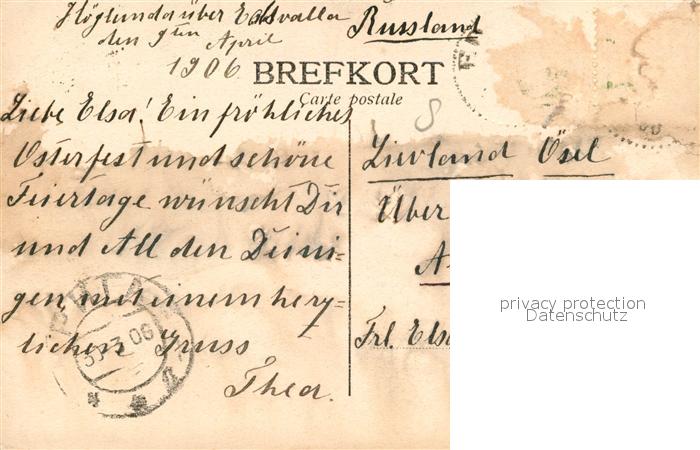 Höglunda über Edsvalla
den 9ten April
1906
Russland
BREFKORT
Carte postale
Liebe Elsa! Ein fröhliches
Osterfest und schöne
Feiertage wünscht Dir
und All den Deini-
gen, mit einem herz-
lichen Gruss
Thea.
Lievland Ösel
Über
A
Frl. Elsa
privacy protection
Datenschutz